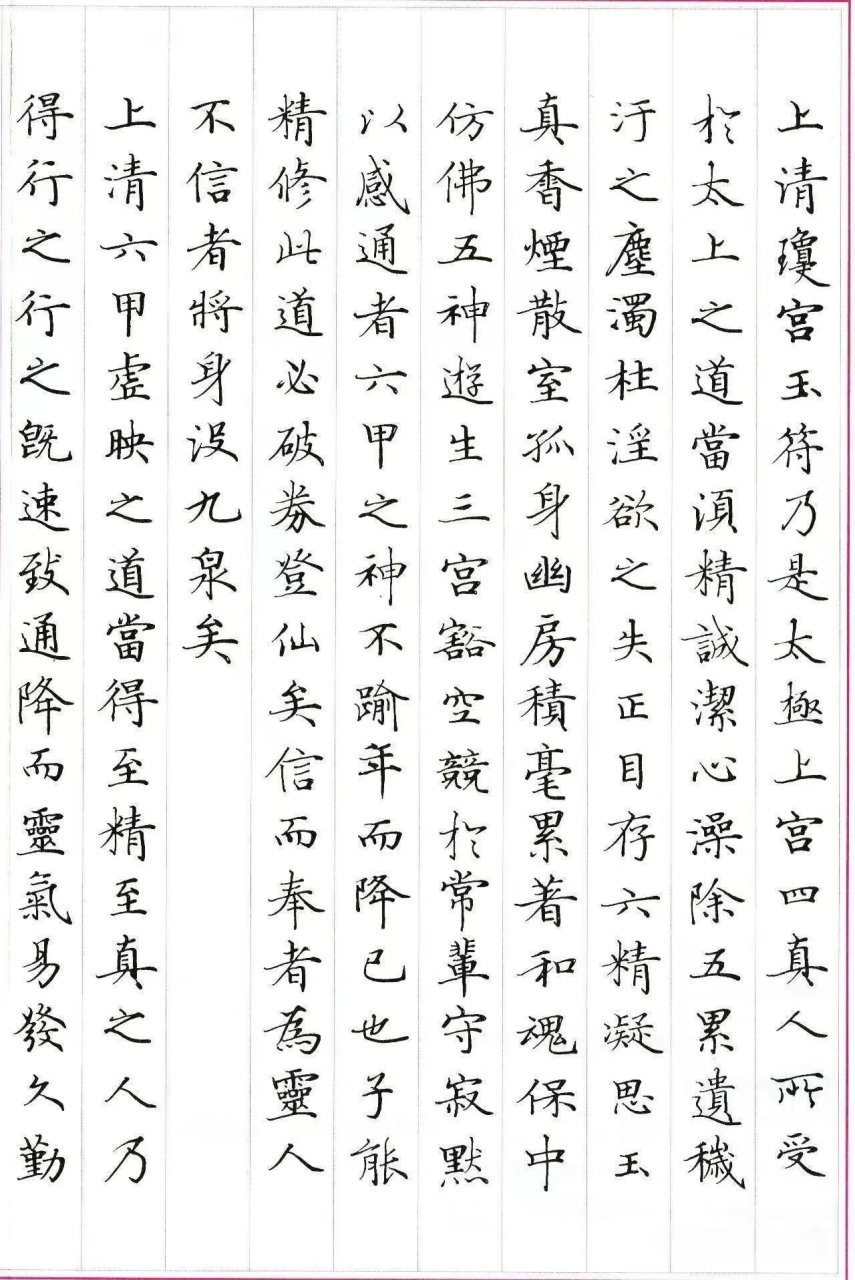 上清瓊宮玉符乃是太極上宮四真人所受
於太上之道當湏精誠潔心澡除五累遺穢
汙之塵濁杜淫欲之失正目存六精凝思玉
真香煙散室孤身幽房積毫累著和魂保中
仿佛五神遊生三宮豁空競於常輩守寂默
以感通者六甲之神不踰年而降已也子能
精修此道必破券登仙矣信而奉者為靈人
不信者將身沒九泉矣
上清六甲虛映之道當得至精至真之人乃
得行之行之既速致通降而靈氣易發久勤